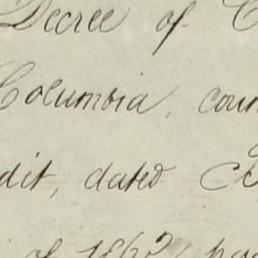 Decree of
Columbia, coun
dit, dated
of 1862